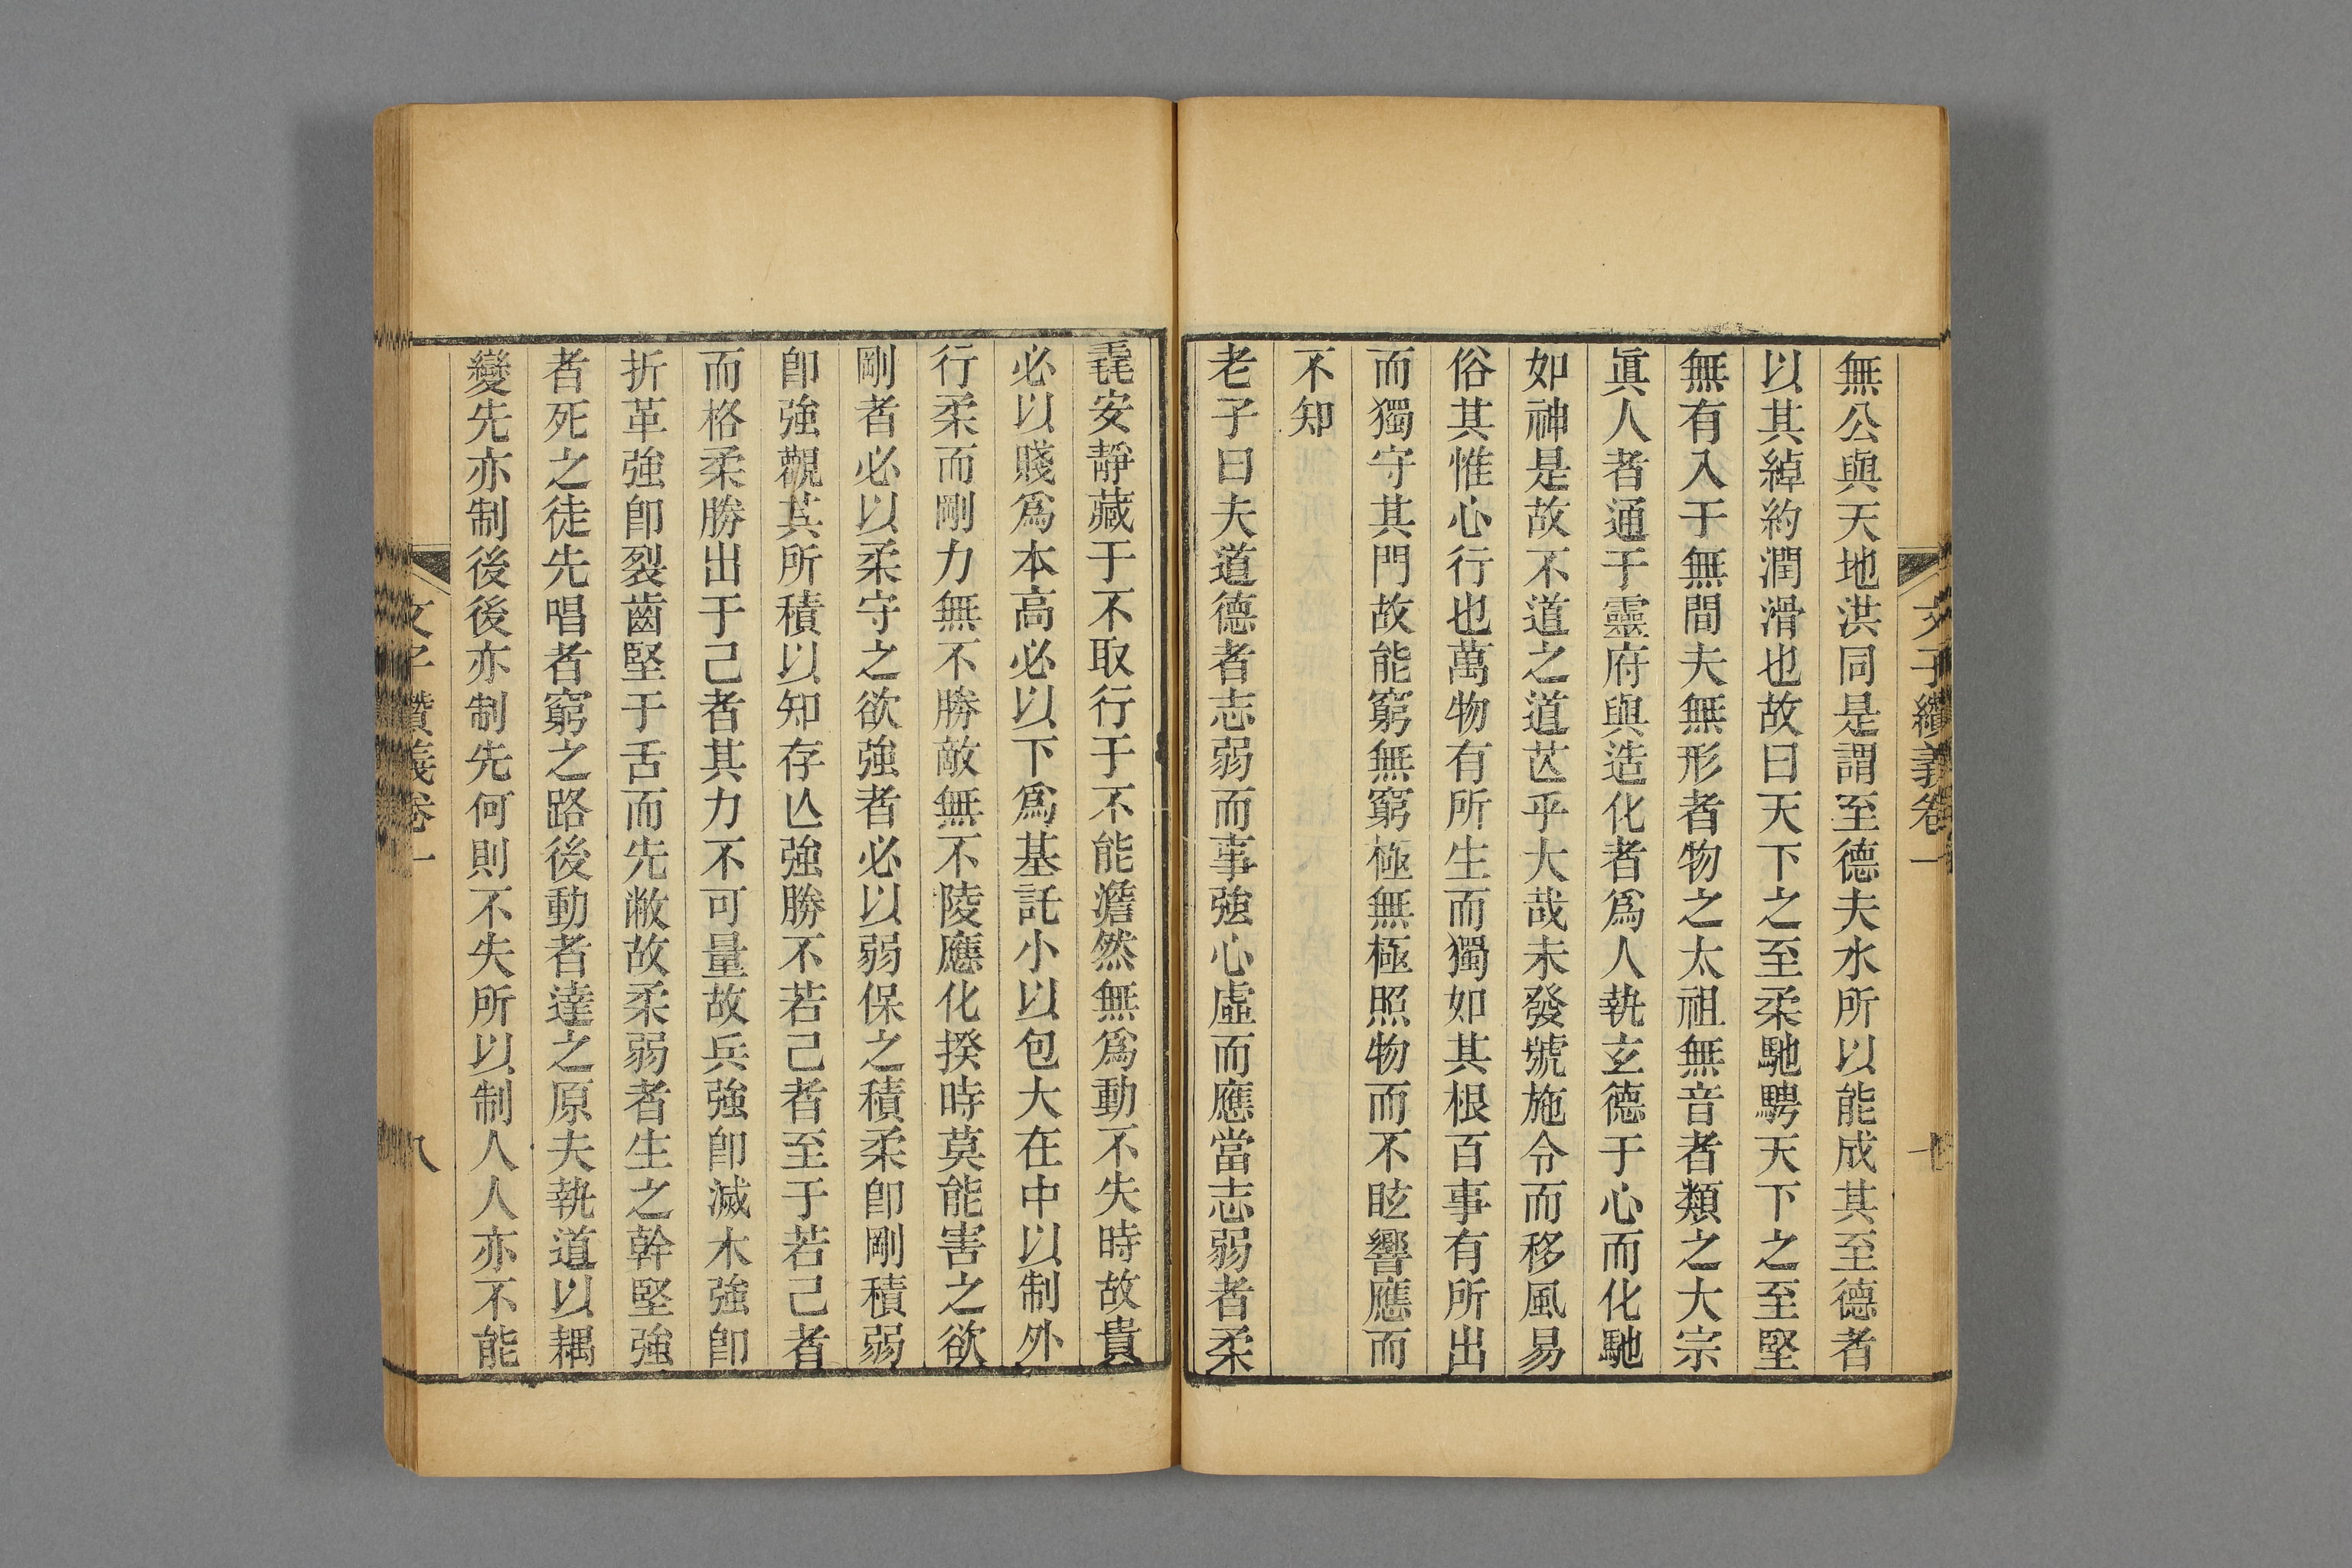 文子纘義卷一
無公與天地洪同是謂至德夫水所以能成其至德者
以其綽約潤滑也故曰天下之至柔馳騁天下之至堅
無有入于無間夫無形者物之太祖無音者類之大宗
眞人者通于靈府與造化者爲人執玄德于心而化馳
如神是故不道之道芒乎大哉未發號施令而移風易
俗其惟心行也萬物有所生而獨如其根百事有所出
而獨守其門故能窮無窮極無極照物而不眩響應而
不知
老子曰夫道德者志弱而事強心虛而應當志弱者柔
毳安靜藏于不取行于不能澹然無爲動不失時故貴
必以賤爲本高必以下爲基託小以包大在中以制外
行柔而剛力無不勝敵無不陵應化揆時莫能害之欲
剛者必以柔守之欲強者必以弱保之積柔卽剛積弱
卽強觀其所積以知存亾強勝不若己者至于若己者
而格柔勝出于己者其力不可量故兵強卽滅木強卽
折革強卽裂齒堅于舌而先敝故柔弱者生之幹堅強
者死之徒先唱者窮之路後動者達之原夫執道以耦
變先亦制後後亦制先何則不失所以制人人亦不能
文子纘義卷一
八